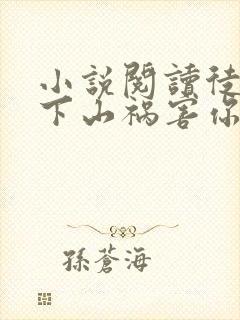 小說閱讀徒
下山禍害你
孫蒼海